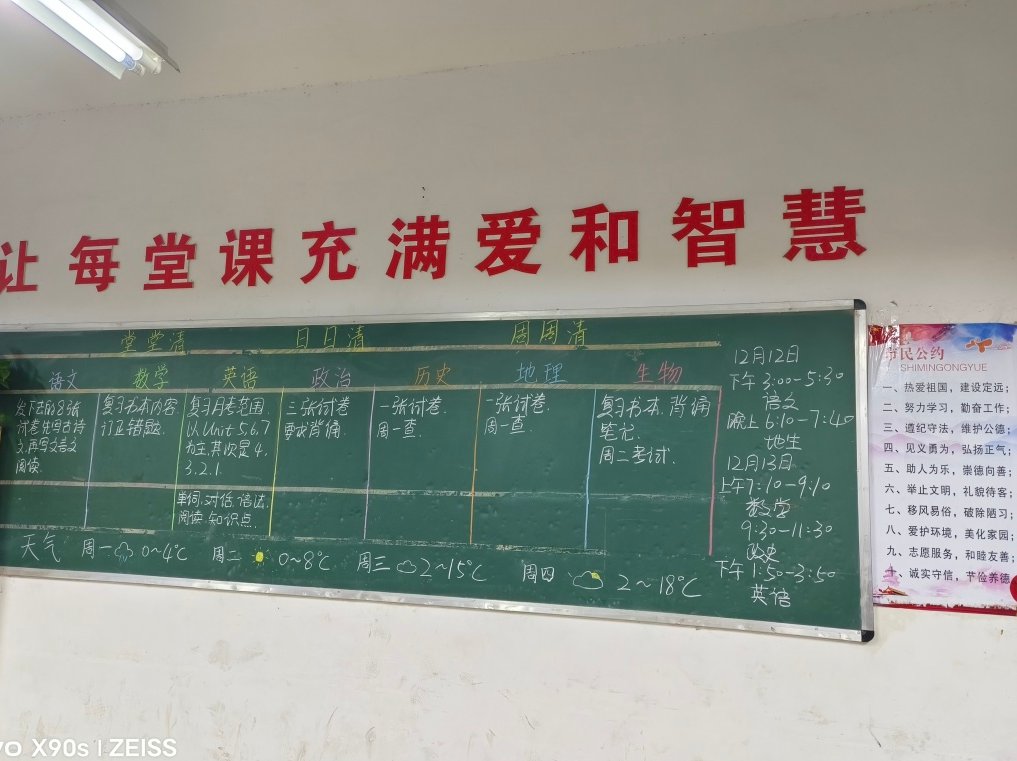 让每堂课充满爱和智慧
堂堂清 日日清 周周清
语文 数学 英语 政治 历史 地理 生物
发下去的8张
试卷先写古诗
文,再写文言文
阅读.
复习书本内容
订正错题.
复习月考范围.
以Unit 5.6.7
为主,其次是4.
3.2.1.
单词.对话.语法.
阅读.知识点.
三张试卷
要求背诵.
一张试卷.
周一查.
一张试卷.
周一查.
复习书本.背诵
笔记.
周二考试.
天气 周一 0~4℃ 周二 0~8℃ 周三 2~15℃ 周四 2~18℃
12月12日
下午3:00-5:30
语文
晚上6:10-7:40
地生
12月13日
上午7:10-9:10
数学
9:30-11:30
政史
下午1:50-3:50
英语
市民公约
SHIMINGONGYUE
一、热爱祖国,建设定远;
二、努力学习,勤奋工作;
三、遵纪守法,维护公德;
四、见义勇为,弘扬正气;
五、助人为乐,崇德向善;
六、举止文明,礼貌待客;
七、移风易俗,破除陋习;
八、爱护环境,美化家园;
九、志愿服务,和睦友善;
十、诚实守信,节俭养德
vo X90s | ZEISS